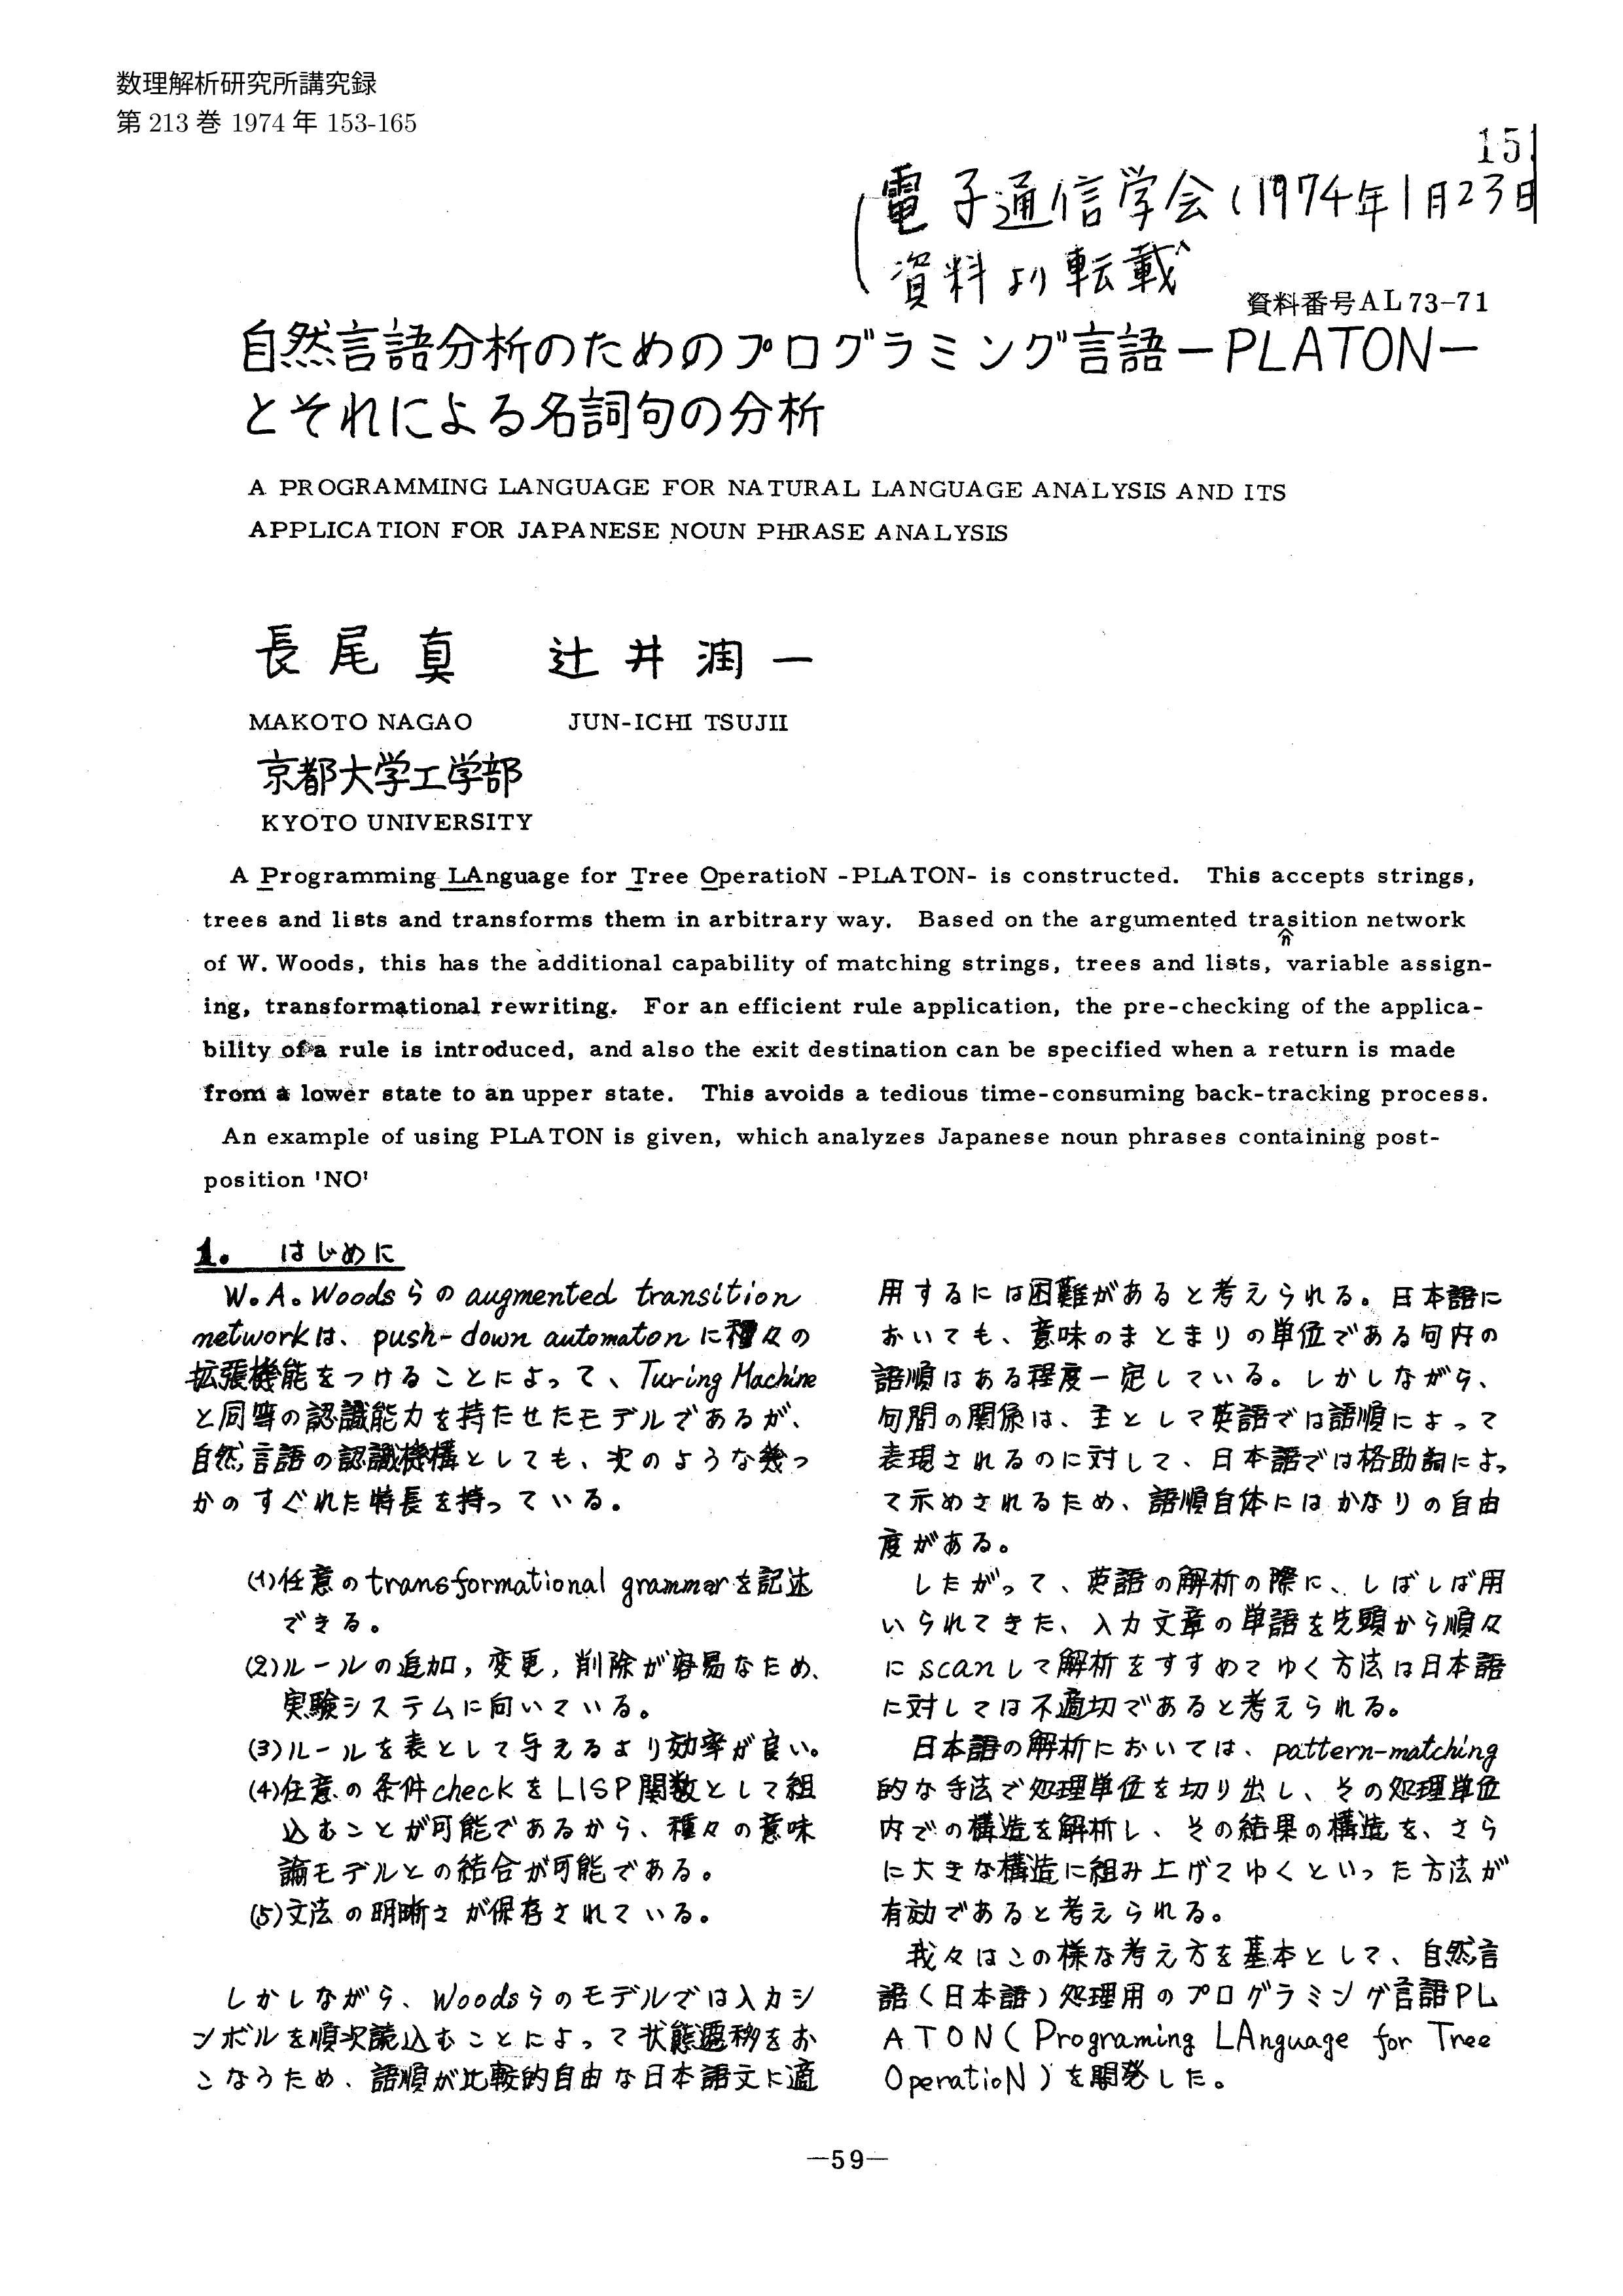 数理解析研究所講究録
第 213 巻 1974 年 153-165
15
電子通信学会(1974年1月23日
資料より転載
資料番号AL73-71
自然言語分析のためのプログラミング言語ーPLATONー
とそれによる名詞句の分析
A PROGRAMMING LANGUAGE FOR NATURAL LANGUAGE ANALYSIS AND ITS
APPLICATION FOR JAPANESE NOUN PHRASE ANALYSIS
長尾真 辻井潤一
MAKOTO NAGAO JUN-ICHI TSUJII
京都大学工学部
KYOTO UNIVERSITY
A Programming LAnguage for Tree OperatioN -PLATON- is constructed. This accepts strings,
trees and lists and transforms them in arbitrary way. Based on the argumented transition network
of W. Woods, this has the additional capability of matching strings, trees and lists, variable assign-
ing, transformational rewriting. For an efficient rule application, the pre-checking of the applica-
bility of a rule is introduced, and also the exit destination can be specified when a return is made
from a lower state to an upper state. This avoids a tedious time-consuming back-tracking process.
An example of using PLATON is given, which analyzes Japanese noun phrases containing post-
position 'NO'
1. はじめに
W.A.Woodsらのaugmented transition
networkは、push-down automatonに種々の
拡張機能をつけることによって、Turing Machine
と同等の認識能力を持たせたモデルであるが、
自然言語の認識機構としても、次のような幾つ
かのすぐれた特長を持っている。
(1)任意のtransformational grammarを記述
できる。
(2)ルールの追加,変更,削除が容易なため、
実験システムに向いている。
(3)ルールを表として与えるより効率が良い。
(4)任意の条件checkをLISP関数として組
込むことが可能であるから、種々の意味
論モデルとの結合が可能である。
(5)文法の明晰さが保存されている。
しかしながら、Woodsらのモデルでは入力シ
ンボルを順次読込むことによって状態遷移をお
こなうため、語順が比較的自由な日本語文に適
用するには困難があると考えられる。日本語に
おいても、意味のまとまりの単位である句内の
語順はある程度一定している。しかしながら、
句間の関係は、主として英語では語順によって
表現されるのに対して、日本語では格助詞によっ
て示めされるため、語順自体にはかなりの自由
度がある。
したがって、英語の解析の際に、しばしば用
いられてきた、入力文章の単語を先頭から順々
にscanして解析をすすめてゆく方法は日本語
に対しては不適切であると考えられる。
日本語の解析においては、pattern-matching
的な手法で処理単位を切り出し、その処理単位
内での構造を解析し、その結果の構造を、さら
に大きな構造に組み上げてゆくといった方法が
有効であると考えられる。
我々はこの様な考え方を基本として、自然言
語(日本語)処理用のプログラミング言語PL
ATON(Programing LAnguage for Tree
OperatioN)を開発した。
—59—